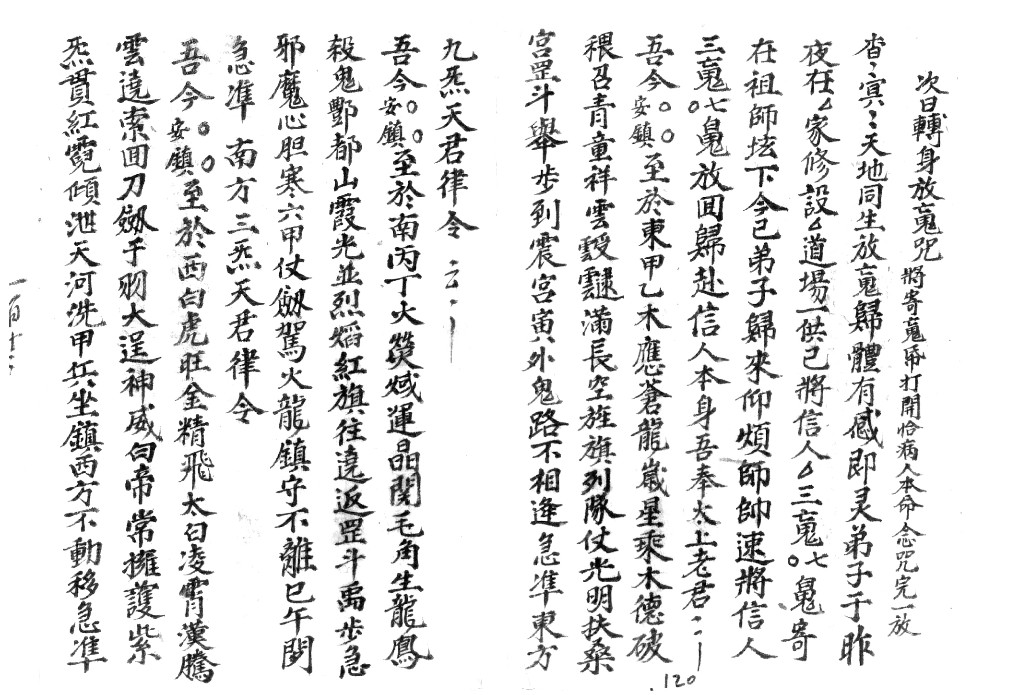 次日轉身放䰟咒 將寄䰟帋打開恰病人本命念咒完一放
杳〻冥〻天地同生放䰟歸體有感即灵弟子于昨
夜在△家修設△道場一供已將信人△三䰟。七䰟寄
在祖師坛下今已弟子歸來仰煩師帥速將信人
三䰟。七䰟放囬歸赴信人本身吾奉太上老君
吾今安鎮。。至於東甲乙木應蒼龍嵗星乘木德破
穢召青童祥雲靉靆滿長空旌旗列隊仗光明扶桑
宮罡斗舉步到震宮寅外鬼路不相逢急准東方
九炁天君律令 云
吾今安鎮。。至於南丙丁火熒惑運晶閏毛角生龍鳳
殺鬼酆都山霞光並烈熖紅旗往遶返罡斗禹步急
邪魔心胆寒六甲仗劔駕火龍鎮守不離巳午関
急准 南方三炁天君律令
吾今安鎮。。至於西白虎旺金精飛太白凌霄漢騰
雲遶索囬刀劔手羽大逞神威白帝常擁護紫
炁貫紅霓傾泄天河洗甲兵坐鎮西方不動移急準
120